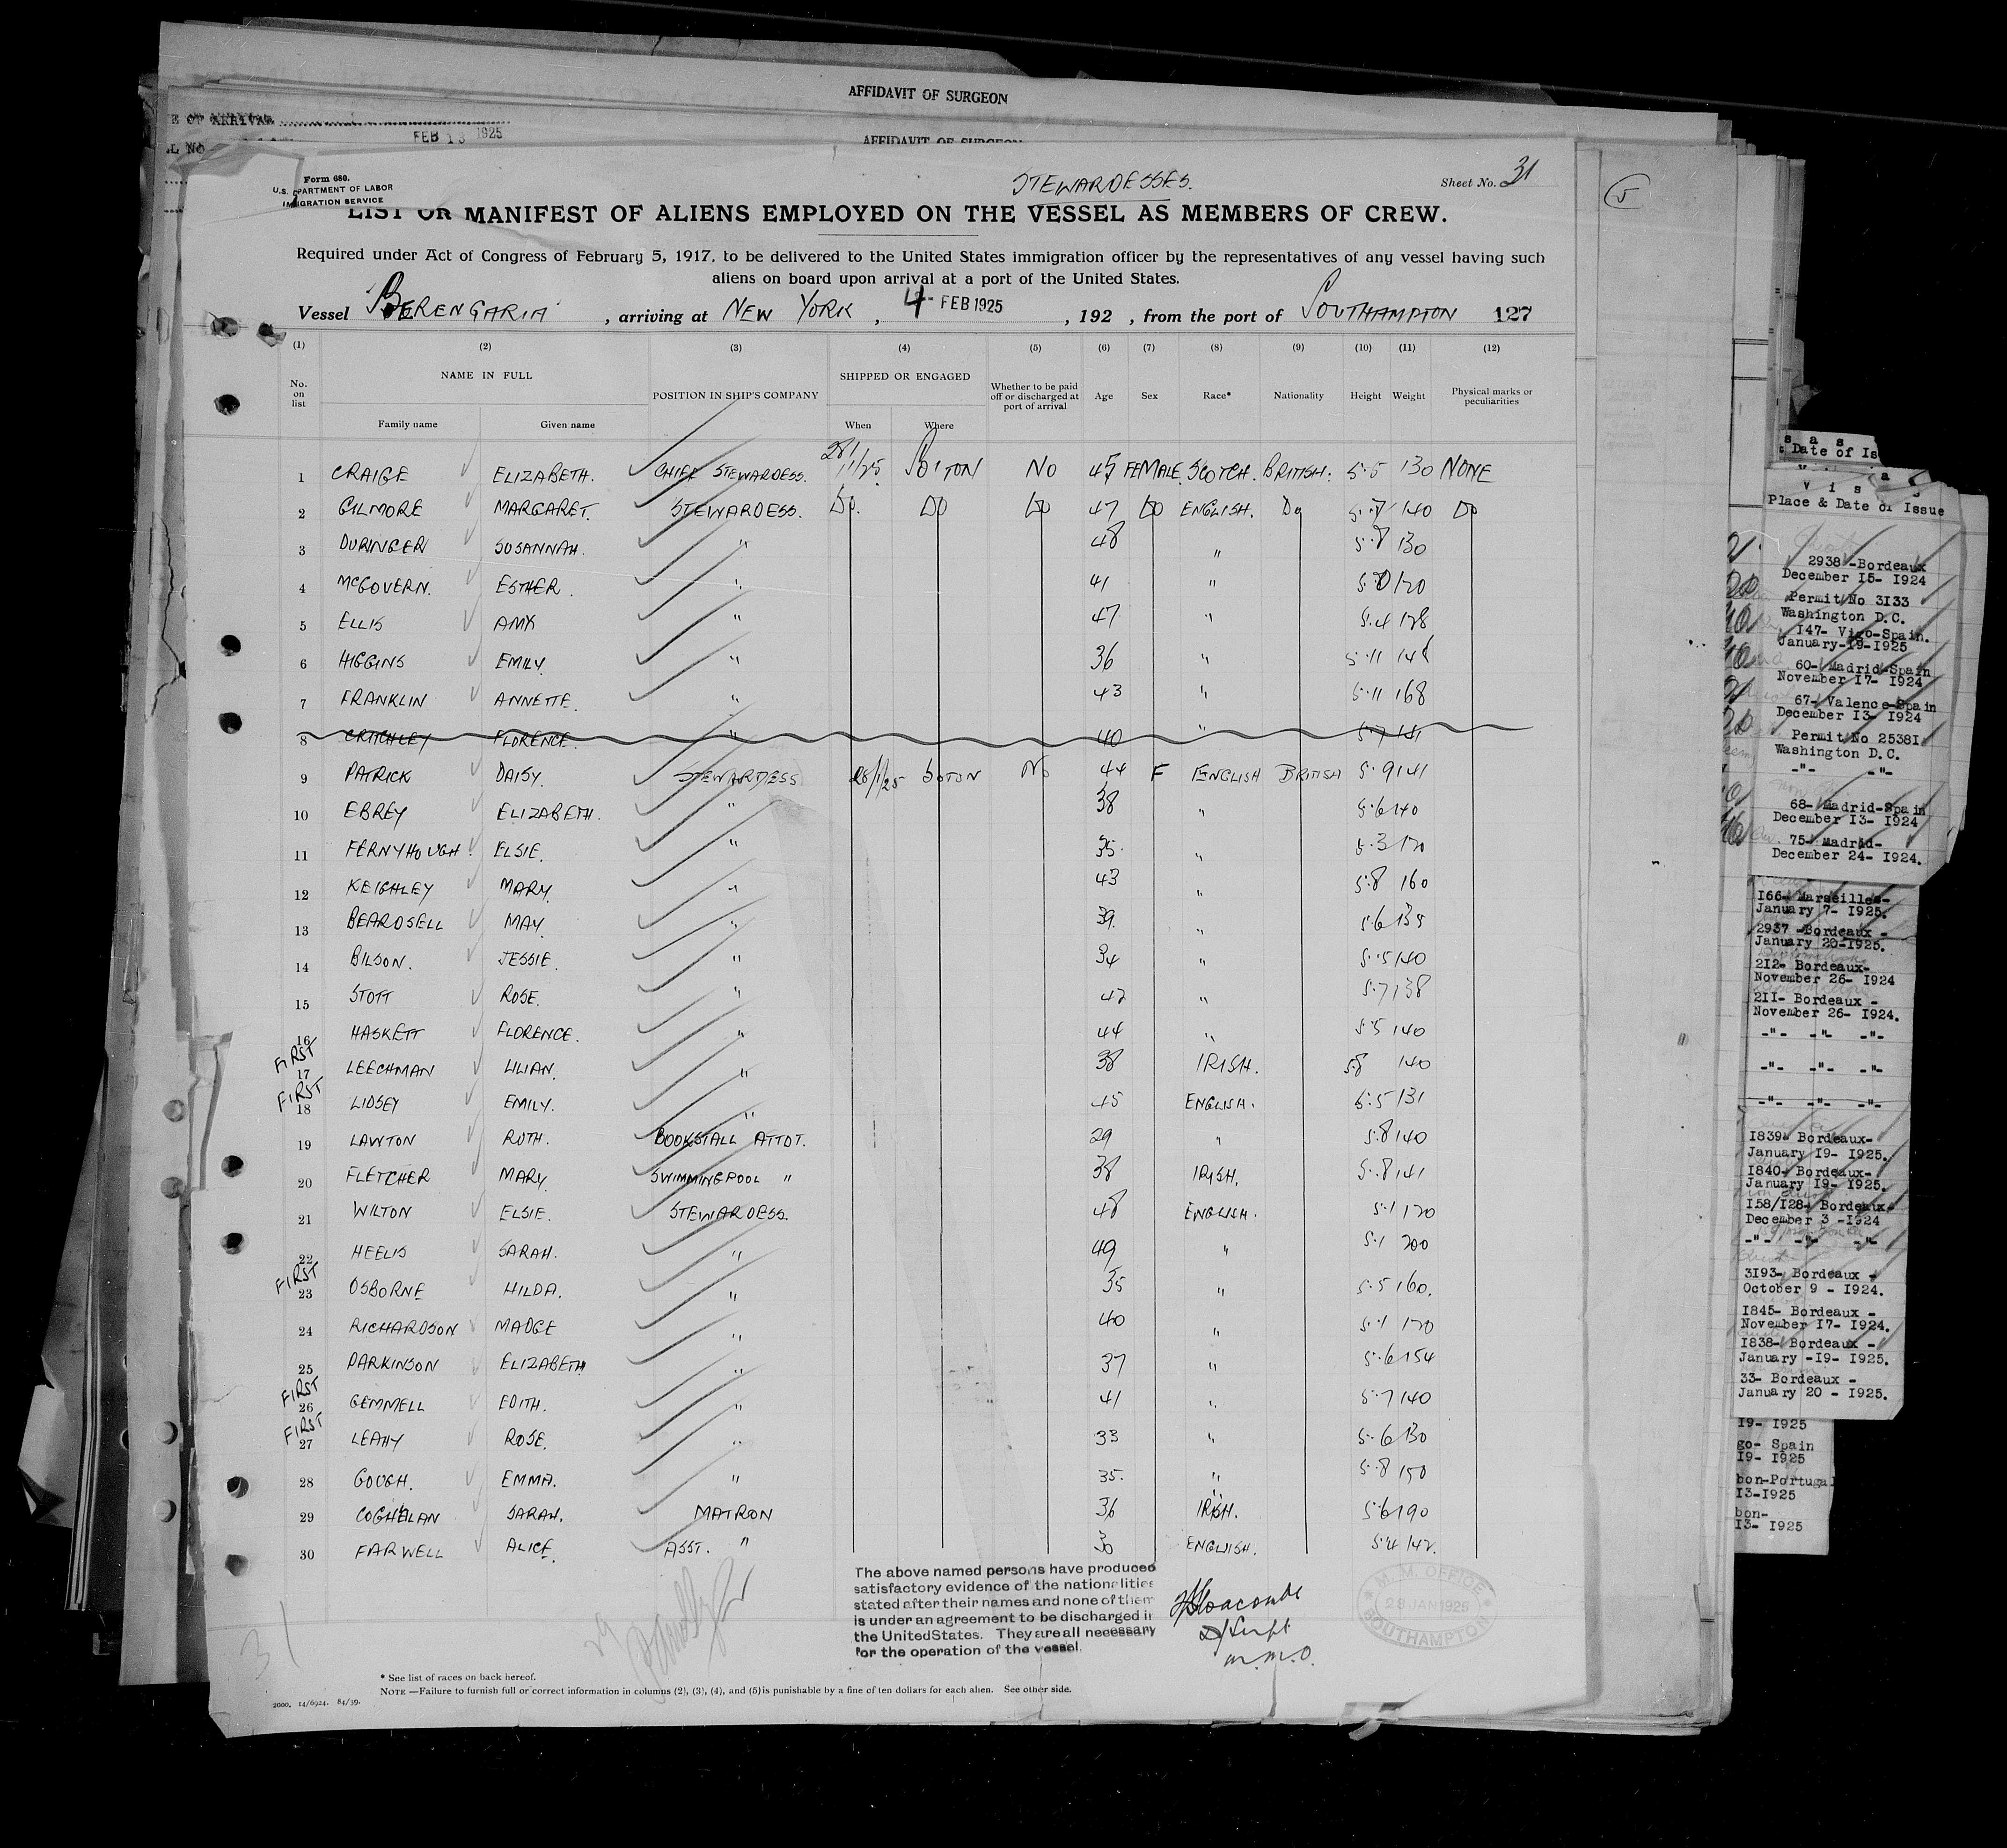 AFFIDAVIT OF SURGEON
E OF ARRIVAL
FEB 13 1925
L NO
AFFIDAVIT OF SURGEON
Form 680.
U.S. DEPARTMENT OF LABOR
IMMIGRATION SERVICE
STEWARDESSES.
Sheet No. 31
5
LIST OR MANIFEST OF ALIENS EMPLOYED ON THE VESSEL AS MEMBERS OF CREW.
Required under Act of Congress of February 5, 1917, to be delivered to the United States immigration officer by the representatives of any vessel having such
aliens on board upon arrival at a port of the United States.
Vessel BERENGARIA, arriving at NEW YORK, 4- FEB 1925, 192 , from the port of SOUTHAMPTON 127
(1) (2) (3) (4) (5) (6) (7) (8) (9) (10) (11) (12)
No. on list NAME IN FULL POSITION IN SHIP'S COMPANY SHIPPED OR ENGAGED Whether to be paid off or discharged at port of arrival Age Sex Race* Nationality Height Weight Physical marks or peculiarities
Family name Given name When Where
1 CRAIGE ELIZABETH. CHIEF STEWARDESS. 28/1/25 SOTON NO 45 FEMALE SCOTCH. BRITISH. 5.5 130 NONE
2 GILMORE MARGARET. STEWARDESS. DO. DO DO 47 DO ENGLISH. DO 5.7 140 DO
3 DURINGER SUSANNAH. " 48 " 5.8 130
4 McGOVERN. ESTHER. " 41 " 5.0 120
5 ELLIS AMY " 47 " 5.4 128
6 HIGGINS EMILY. " 36 " 5.11 148
7 FRANKLIN ANNETTE. " 43 " 5.11 168
8 CRITCHLEY FLORENCE. " 40 " 5.7 141
9 PATRICK DAISY. STEWARDESS 28/1/25 SOTON No 44 F ENGLISH BRITISH 5.9 141
10 EBREY ELIZABETH. " 38 " 5.6 140
11 FERNYHOUGH. ELSIE. " 35. " 5.3 120
12 KEIGHLEY MARY. " 43 " 5.8 160
13 BEARDSELL MAY. " 39. " 5.6 135
14 BILSON. JESSIE. " 34 " 5.5 140
15 STOTT ROSE. " 42 " 5.7 138
16 HASKETT FLORENCE. " 44 " 5.5 140
FIRST 17 LEECHMAN LILIAN. " 38 IRISH. 5.8 140
FIRST 18 LIDSEY EMILY. " 45 ENGLISH. 5.5 131
19 LAWTON RUTH. BOOKSTALL ATTDT. 29 " 5.8 140
20 FLETCHER MARY. SWIMMINGPOOL " 38 IRISH. 5.8 141
21 WILTON ELSIE. STEWARDESS. 48 ENGLISH. 5.1 120
22 HEELIS SARAH. " 49 " 5.1 200
FIRST 23 OSBORNE HILDA. " 35 " 5.5 160.
24 RICHARDSON MADGE " 40 " 5.1 120
25 PARKINSON ELIZABETH " 37 " 5.6 154
FIRST 26 GEMMELL EDITH. " 41 " 5.7 140
FIRST 27 LEAHY ROSE. " 33 " 5.6 130
28 GOUGH. EMMA. " 35. " 5.8 150
29 COGHLAN SARAH. MATRON 36 IRISH. 5.6 190
30 FARWELL ALICE. ASST. " 30 ENGLISH. 5.4 142.
The above named persons have produced
satisfactory evidence of the nationalities
stated after their names and none of them
is under an agreement to be discharged in
the United States. They are all necessary
for the operation of the vessel.
D/Supt
M.M.O.
M. M. OFFICE
28 JAN 1925
SOUTHAMPTON
31
29
* See list of races on back hereof.
NOTE—Failure to furnish full or correct information in columns (2), (3), (4), and (5) is punishable by a fine of ten dollars for each alien. See other side.
2000. 14/6924. 84/39.
s a s
Date of Is
V i s a s
Place & Date of Issue
2938-Bordeaux
December 15- 1924
Permit No 3133
Washington D.C.
147- Vigo-Spain.
January-19-1925
60- Madrid-Spain
November 17- 1924
67- Valence-Spain
December 13- 1924
Permit No 25381
Washington D.C.
-"- -"-
68- Madrid-Spain
December 13- 1924
75- Madrid-
December 24- 1924.
166- Marseilles-
January 7- 1925.
2937 -Bordeaux -
January 20-1925.
212- Bordeaux-
November 26- 1924
211- Bordeaux -
November 26- 1924.
-"- -"- -"-
-"- -"- -"-
-"- -"- -"-
1839- Bordeaux-
January 19- 1925.
1840- Bordeaux-
January 19- 1925.
158/128- Bordeaux-
December 3 -1924
-"- -"- -"-
3193- Bordeaux -
October 9 - 1924.
1845- Bordeaux -
November 17- 1924.
1838- Bordeaux -
January -19- 1925.
33- Bordeaux -
January 20 - 1925.
19- 1925
go- Spain
19- 1925
bon-Portugal
13-1925
bon-
13- 1925